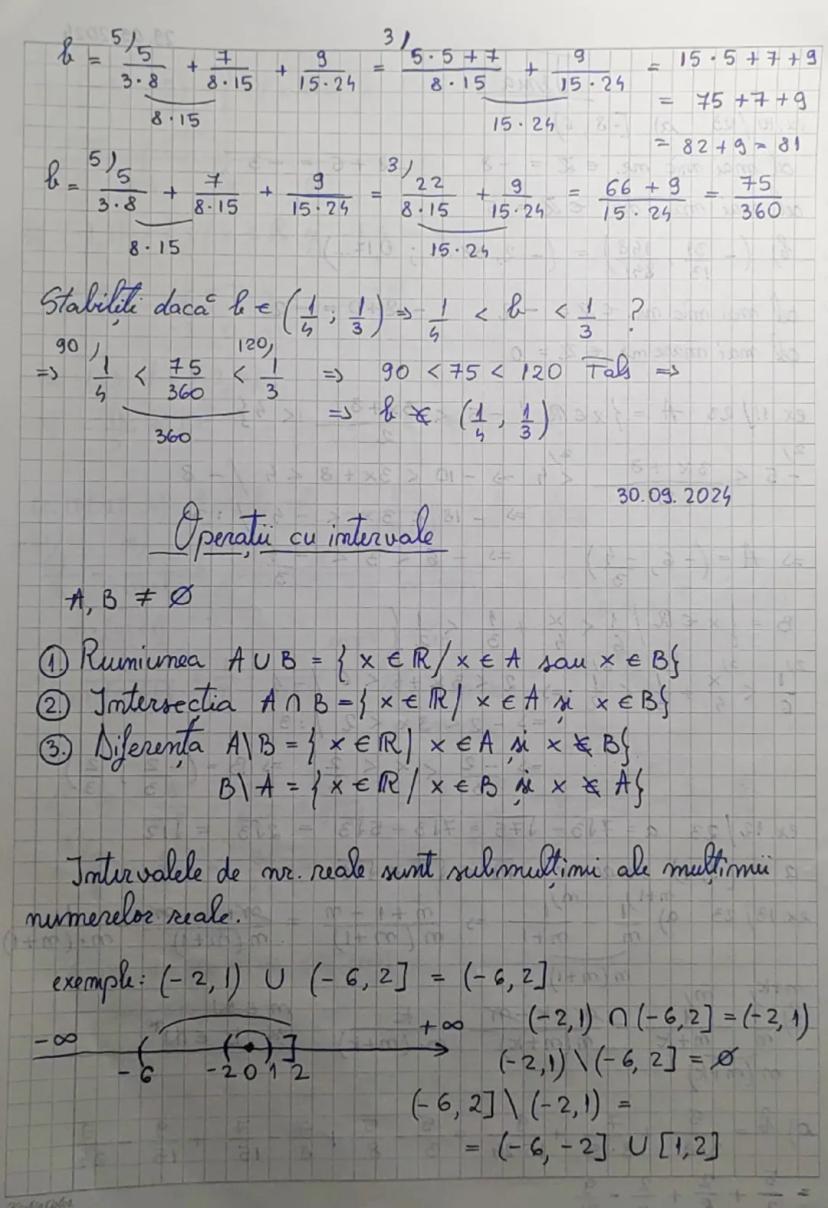 b = 5/3·8 + 7/8·15 + 9/15·24 = 5·5+7/8·15 + 9/15·24 = 15·5+7+9
5) 3)
8·15 15·24 = 75+7+9
= 82+9 = 81
b = 5/3·8 + 7/8·15 + 9/15·24 = 22/8·15 + 9/15·24 = 66+9/15·24 = 75/360
5) 3)
8·15 15·24
Stabiliți dacă b ∈ (1/4; 1/3) ⇒ 1/4 < b < 1/3 ?
90) 120)
⇒ 1/4 < 75/360 < 1/3 ⇒ 90 < 75 < 120 Fals ⇒
360 ⇒ b ∉ (1/4, 1/3)
30.09.2024
Operații cu intervale
A, B ≠ ∅
① Reuniunea A ∪ B = { x ∈ ℝ / x ∈ A sau x ∈ B}
②. Intersecția A ∩ B = { x ∈ ℝ / x ∈ A și x ∈ B}
③. Diferența A\B = { x ∈ ℝ / x ∈ A și x ∉ B}
B\A = { x ∈ ℝ / x ∈ B și x ∉ A}
Intervalele de nr. reale sunt submulțimi ale mulțimii
numerelor reale.
exemple: (-2, 1) ∪ (-6, 2] = (-6, 2]
-∞ +∞ (-2,1) ∩ (-6, 2] = (-2, 1)
-6 -2 0 1 2 (-2,1) \ (-6, 2] = ∅
(-6, 2] \ (-2,1) =
= (-6, -2] ∪ [1,2]